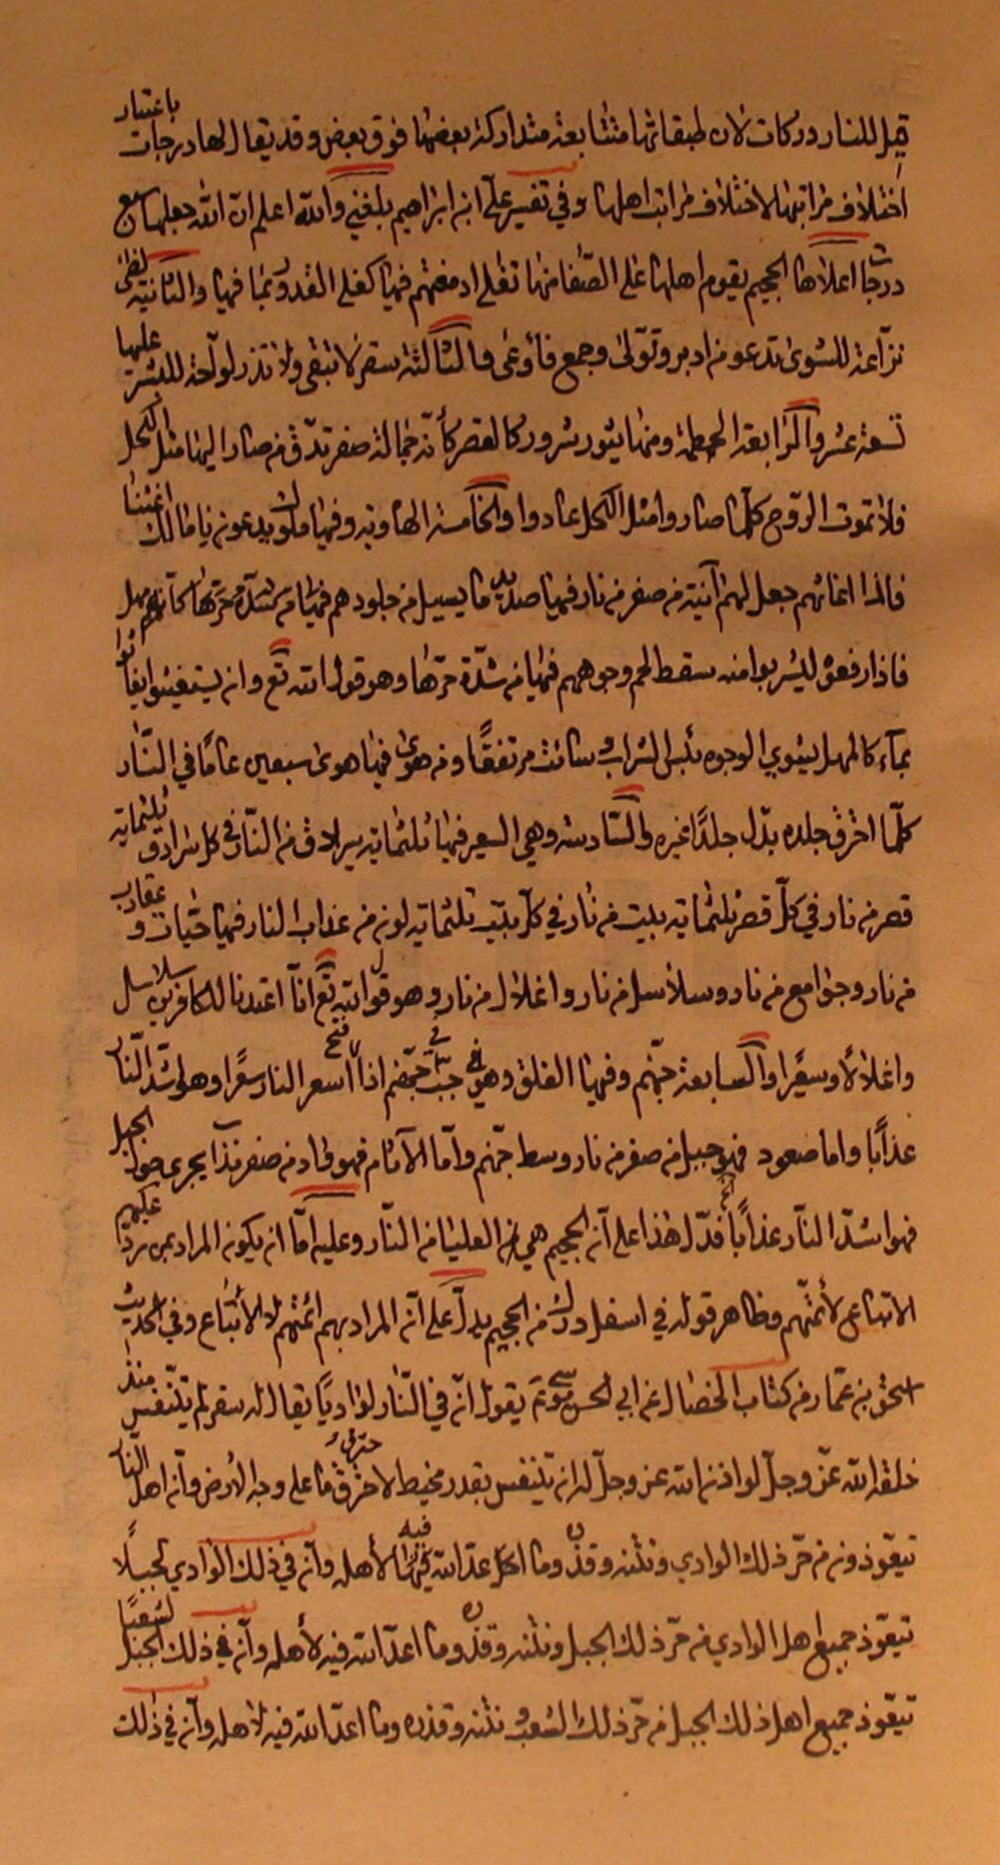 قيل للنار دركات لان طبقاتها متتابعة متداركة بعضها فوق بعض وقد يقال لها درجات باعتبار
اختلاف مراتبها لاختلاف مراتب اهلها وفي تفسير علي ابن ابراهيم بلغني والله اعلم ان الله جعلها سبع
درجات اعلاها الجحيم يقوم اهلها على الصفا منها تغلي ادمغتهم فيها كغلي القدور بما فيها والثانية لظى
نزاعة للشوى تدعو من ادبر وتولى وجمع فأوعى والثالثة سقر لا تبقي ولا تذر لواحة للبشر عليها
تسعة عشر والرابعة الحطمة ومنها يثور شرر كالقصر كأنه جمالة صفر تدق من صار اليها مثل الكحل
فلا تموت الروح كلما صاروا مثل الكحل عادوا والخامسة الهاوية وفيها ملك يدعون يا مالك اغثنا
فاذا اغاثهم جعل لهم آنية من صفر من نار فيها صديد ما يسيل من جلودهم فيها من شدة حرها كانه مهل
فاذا رفعوه ليشربوا منه سقط لحم وجوههم فيها من شدة حرها وهو قول الله تع وان يستغيثوا يغاثوا
بماء كالمهل يشوي الوجوه بئس الشراب وسائت مرتفقًا ومن هوى فيها هوى سبعين عامًا في النار
كلما احترق جلده بدل جلدًا غيره والسادسة وهي السعير فيها ثلثماية سرادق من النار في كل سرادق ثلثماية
قصر من نار في كل قصر ثلثماية بيت من نار في كل بيت ثلثماية لون من عذاب النار فيها حيات وعقارب
من نار وجوامع من نار وسلاسل من نار واغلال من نار وهو قول الله تع انا اعتدنا للكافرين سلاسل
واغلالًا وسعيرًا والسابعة جهنم وفيها الفلق وهو جب في جهنم اذا فتح اسعر النار سعرًا وهو اشد النار
عذابًا واما صعود فهو جبل من صفر من نار وسط جهنم واما الآثام فهو واد من صفر مذاب يجري حول الجبل
فهو اشد النار عذابًا فدل هذا على ان الجحيم هي العليا من النار وعليه اما ان يكون المراد بمن رد عليهم
الاتباع لأئمتهم وظاهر قوله في اسفل درك من الجحيم يدل على ان المراد بهم ائمتهم لا الاتباع وفي حديث
اسحق بن عمار من كتاب الخصال عن ابي الحسن موسى ع يقول ان في النار لواديًا يقال له سقر لم يتنفس منذ
خلقه الله عز وجل لو اذن الله عز وجل له ان يتنفس بقدر مخيط لاحترق ما على وجه الارض وان اهل النار
تيعوذون من حر ذلك الوادي ونتنه وقذره وما اعد الله فيه لأهله وان في ذلك الوادي لجبلًا
تيعوذ جميع اهل الوادي من حر ذلك الجبل ونتنه وقذره وما اعد الله فيه لأهله وان في ذلك الجبل لشعبًا
تيعوذ جميع اهل ذلك الجبل من حر ذلك الشعب ونتنه وقذره وما اعد الله فيه لاهله وان في ذلك